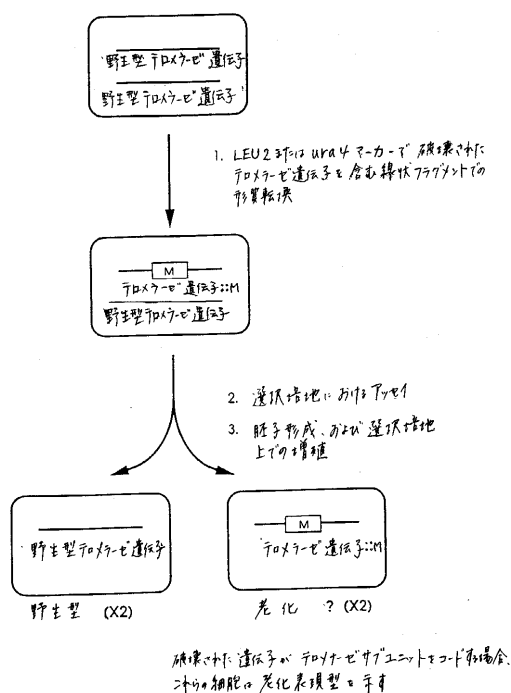 野生型テロメラーゼ遺伝子
野生型テロメラーゼ遺伝子
1. LEU2またはura4マーカーで破壊された
テロメラーゼ遺伝子を含む線状フラグメントでの
形質転換
M
テロメラーゼ遺伝子::M
野生型テロメラーゼ遺伝子
2. 選択培地におけるアッセイ
3. 胚子形成、および選択培地
上での増殖
野生型テロメラーゼ遺伝子
野生型 (X2)
M
テロメラーゼ遺伝子::M
老化 ? (X2)
破壊された遺伝子がテロメラーゼサブユニットをコードする場合、
これらの細胞は老化表現型を示す